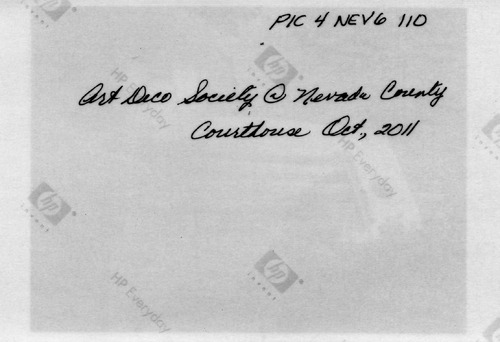 PIC 4 NEV6 110
Art Deco Society @ Nevada County
Courthouse Oct., 2011
HP Everyday
hp
invent
HP Everyday
hp
invent
hp
invent
HP Everyday
hp